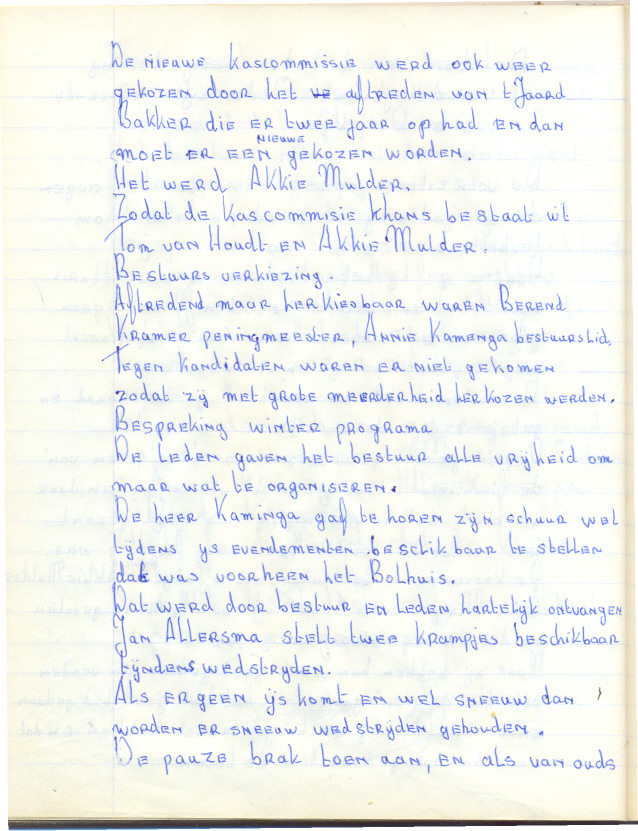 De nieuwe kascommissie werd ook weer
gekozen door het ve aftreden van t Jaard
Bakker die er twee jaar op had en dan
moet er een nieuwe gekozen worden.
Het werd Akkie Mulder.
Zodat de kascommisie thans bestaat uit
Tom van Houdt en Akkie Mulder.
Bestuurs verkiezing.
Aftredend maar herkiesbaar waren Berend
Kramer peningmeester, Annie Kamenga bestuurslid,
Tegen kandidaten waren er niet gekomen
zodat zij met grote meerderheid herkozen werden.
Bespreking winter programa
De leden gaven het bestuur alle vrijheid om
maar wat te organiseren.
De heer Kaminga gaf te horen zijn schuur wel
tijdens ijs evendementen beschikbaar te stellen
dat was voorheen het Bolhuis.
Dat werd door bestuur en leden hartelijk ontvangen
Jan Allersma stelt twee krampjes beschikbaar
tijndens wedstrijden.
Als er geen ijs komt en wel sneeuw dan
worden er sneeuw wedstrijden gehouden.
De pauze brak toen aan, en als van ouds